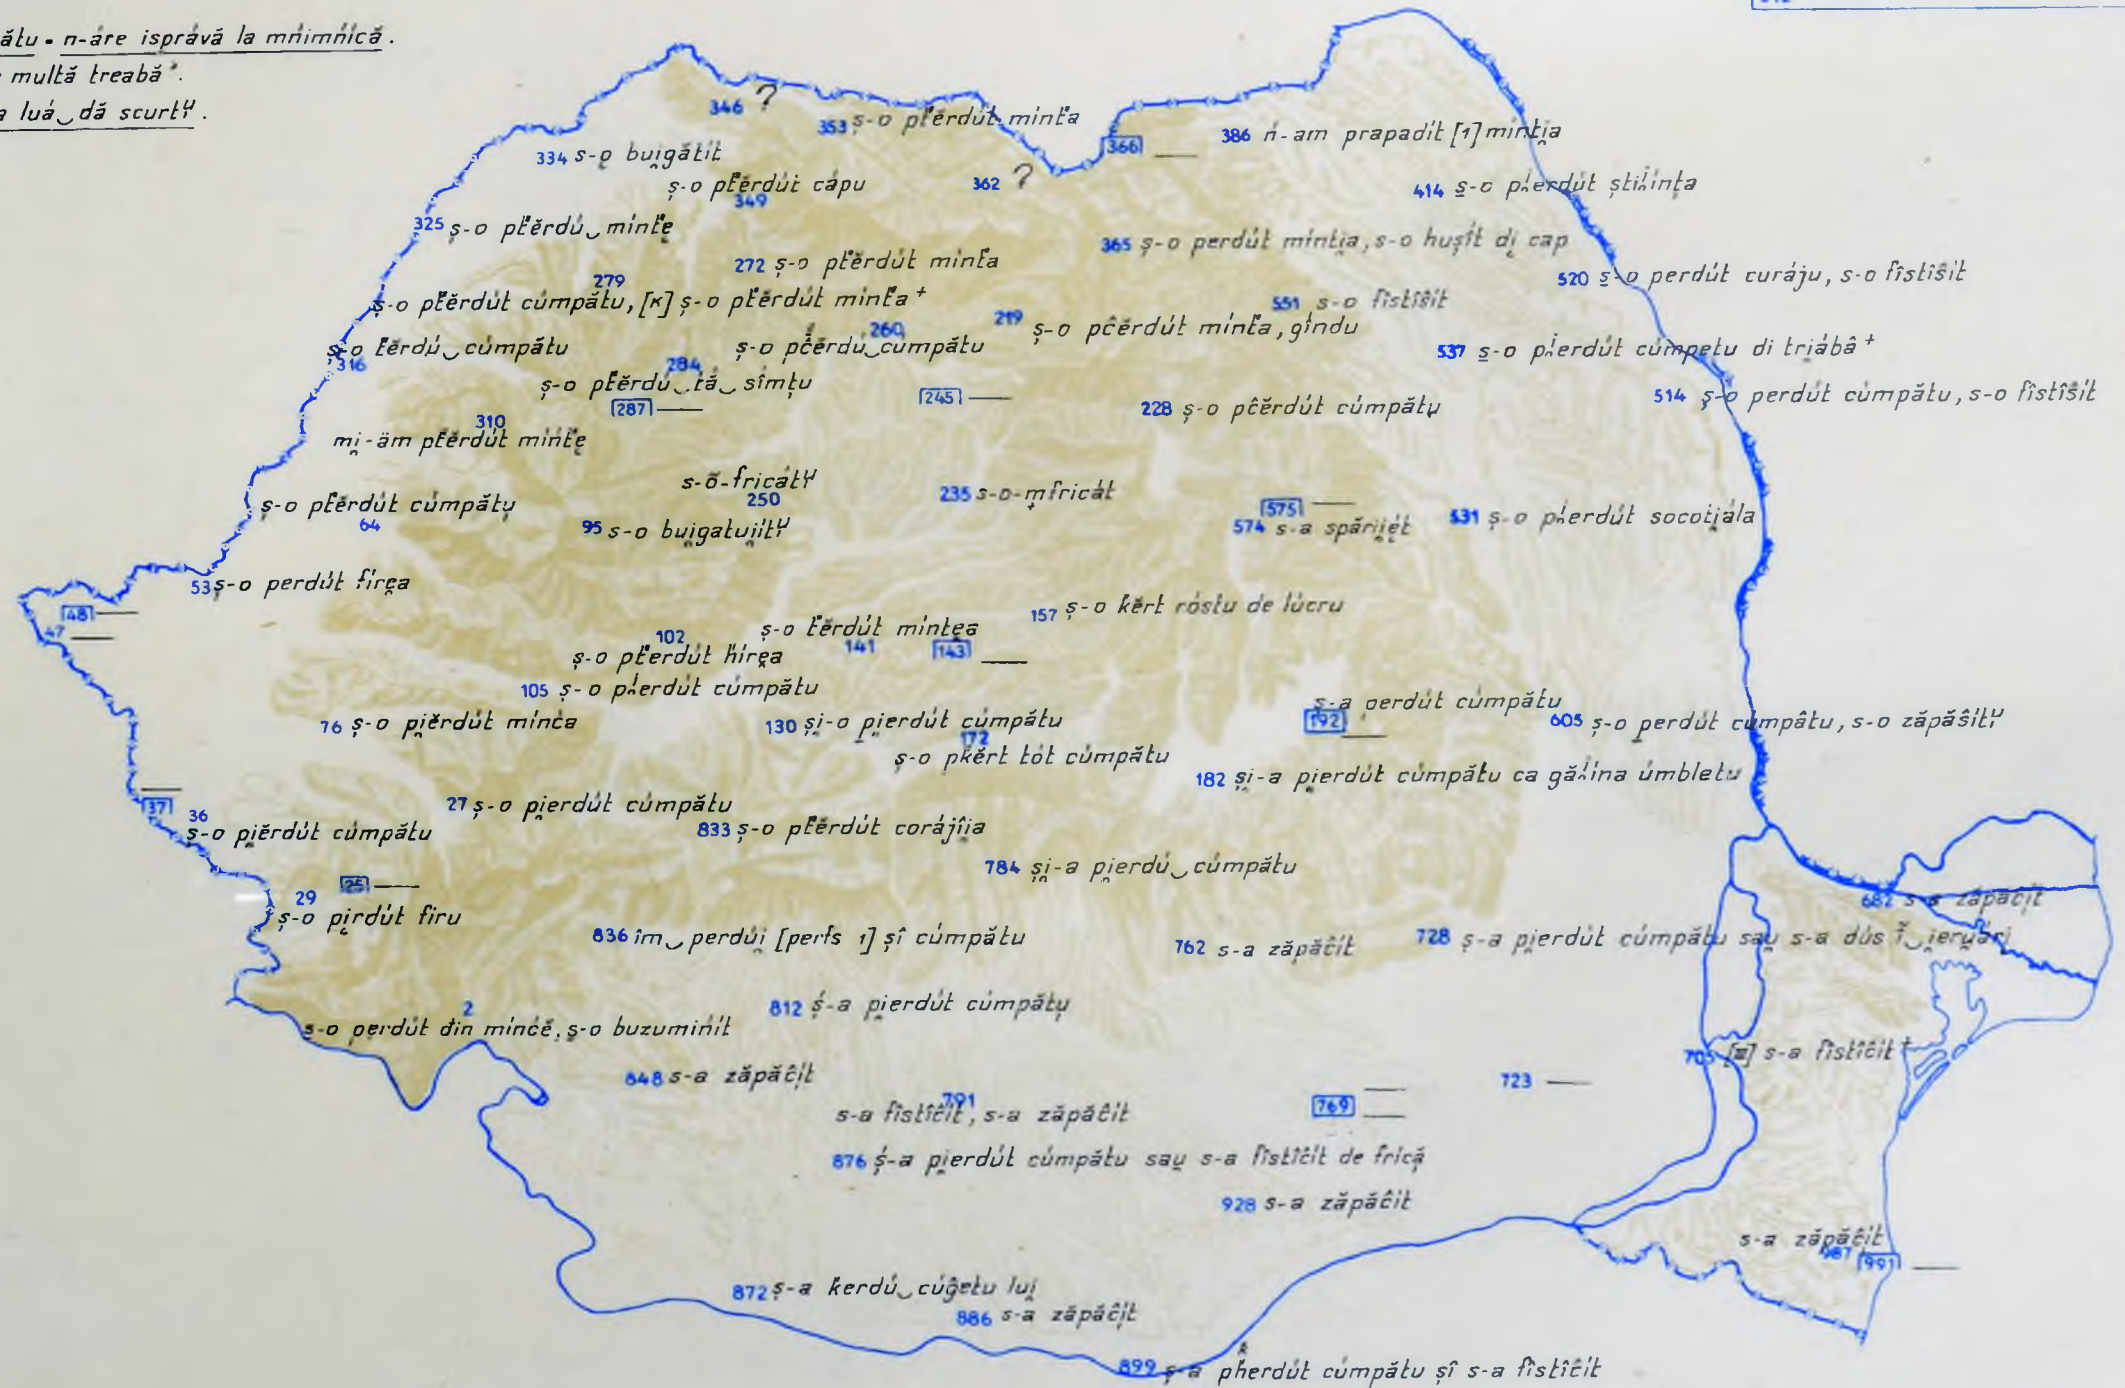 n-áre isprávă la mńimńică.
multă treabă⁺.
luá‿dă scurtʸ.
346 ?
353 ș-o pťĕrdút minťa
366 —
386 ń-am prapadít [1] mínti̯a
334 s-o̯ bui̯gătít
ș-o pťĕrdút cápu
349
362 ?
414 s-o pʰerdút știʰínța
325 ș-o pťĕrdú‿mínťe̯
365 ș-o perdút mínti̯a, s-o hușít di̯ cap
272 ș-o pťĕrdút mínťa
520 s-o perdút curáju, s-o fîstîŝít
279
ș-o pťĕrdút cúmpătu, [к] ș-o pťĕrdút mínťa⁺
551 s-o fîstîŝít
219 ș-o pĉĕrdút mínťa, gîndu
ș-o ťĕrdú‿cúmpătu
316
260
ș-o pĉĕrdú‿cumpătu
537 s-o pʰierdút cúmpetu di tri̯ábâ⁺
284
ș-o pťĕrdú‿tắ‿sîmțu
287 —
245 —
228 ș-o pĉĕrdút cúmpătu̥
514 ș-o perdút cúmpătu, s-o fîstîŝít
310
mi̯-äm pťĕrdút mínťe̯
s-õ-fricátʸ
250
235 s-o-m̥fricát
575 —
574 s-a spări̯i̯ét
531 ș-o pʰerdút socoti̯ála
ș-o pťĕrdút cúmpătu̥
64
95 s-o bui̯gatui̯ítʸ
53 ș-o perdút fíre̯a
48 —
47 —
157 ș-o ǩĕrt róstu de lúcru
ș-o ťĕrdút mínte̯a
141
143 —
102
ș-o pťerdút híre̯a
105 ș-o pʰerdút cúmpătu
76 ș-o pi̯ĕrdút mínca
130 și̯-o pi̯erdút cúmpătu
ș-a perdút cúmpătu
192 —
605 ș-o perdút cúmpâtu, s-o zăpăŝítʸ
172
ș-o pǩĕrt tót cúmpătu
182 și̯-a pi̯erdút cúmpătu ca găʰína úmbletu
37 —
36
ș-o pi̯ĕrdút cúmpătu
27 ș-o pi̯erdút cúmpătu
833 ș-o pťĕrdút corájîi̯a
784 și̯-a pi̯erdú‿cúmpătu
25 —
29
ș-o pi̯rdút firu
836 îm‿perdúi̯ [perfs 1] șî cúmpătu
762 s-a zăpăĉít
728 ș-a pi̯erdút cúmpătu sau̯ s-a dús î̆‿i̯eru̯ári
682 s-a zăpăĉít
2
ș-o perdút đin míncĕ, ș-o buzumińít
812 ș́-a pi̯erdút cúmpătu̥
848 s-a zăpăĉít
705 [III] s-a fîstîĉít⁺
723 —
791
s-a fîstîĉít, s-a zăpăĉít
769 —
—
876 ș́-a pi̯erdút cúmpătu sau̯ s-a fîstîĉít de frícă
928 s-a zăpăĉít
s-a zăpăĉít
987
991 —
872 ș-a ǩerdú‿cúĝetu lui̯
886 s-a zăpăĉít
899 ș-a pʰerdút cúmpătu șî s-a fîstîĉít